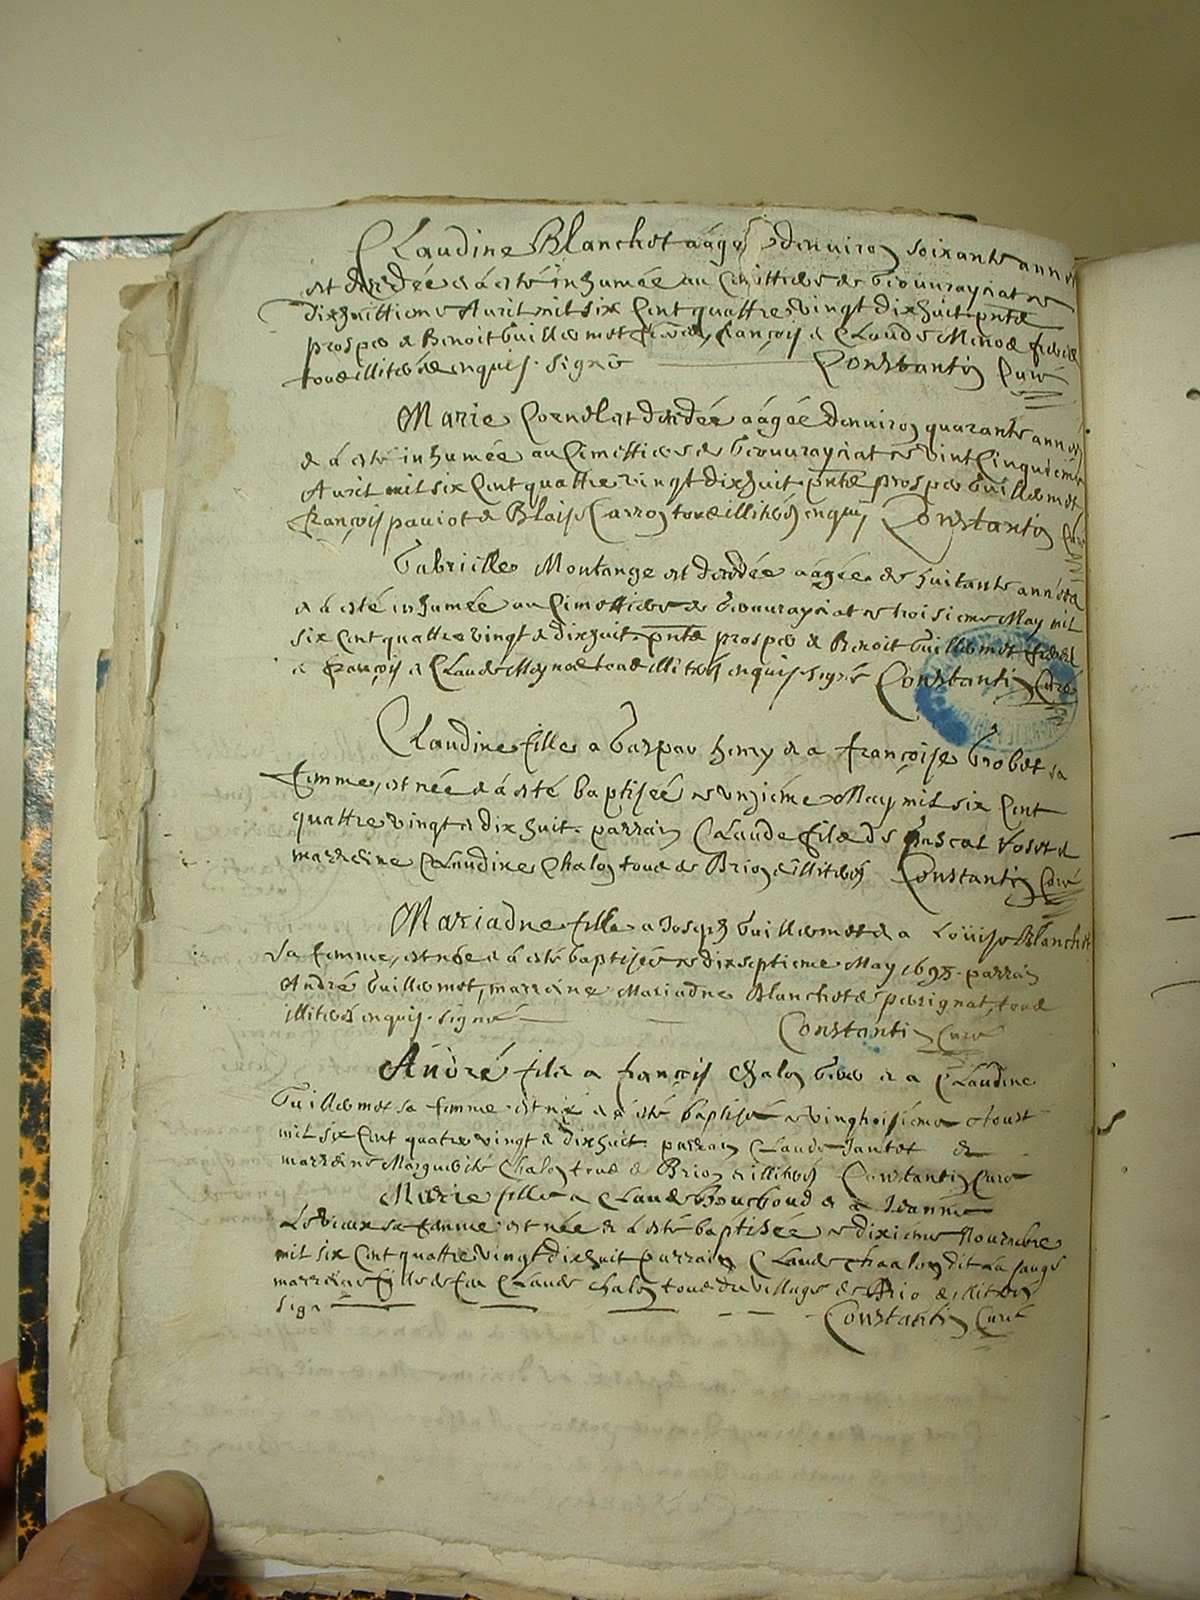 Claudine Blanchet aagée denviron soixante années
est decedée et a esté inhumée au Cimettiere de Geouvraysiat ce
dixhuittieme Avril mil six Cent quattre vingt dixhuit pnts
prosper et Benoit Guillemot freres, françois et Claude Moine freres
tous illiteres enquis. signé Constantin Curé
Marie Cornel est decedée aagée denviron quarante années
et a esté inhumée au Cimettiere de Geouvraysiat ce vint Cinquieme
Avril mil six Cent quattre vingt dixhuit pnts prosper Guillemot,
françois paviot et Blaise Carron tous illiteres enquis Constantin Curé
Gabrielle Montange est decedée aagée de huitante années
et a esté inhumée au Cimettiere de Geouvraysiat ce troisieme May mil
six Cent quattre vingt et dixhuit. pnts prosper et Benoit Guillemot freres
et françois et Claude Moyne tous illiteres enquis. signé Constantin Curé
Claudine fille a Gaspar henry et a françoise Grobet sa
femme, est née et a esté baptisée ce unzieme May mil six Cent
quattre vingt et dix huit. parrain Claude fils de pascal et
marreine Claudine Chalon tous de Brion et illiteres Constantin Curé
Mariadne fille a Joseph Guillemot et a Louise Blanchet
sa femme, est née et a esté baptisée ce dix septieme May 1698. parrain
André Guillemot, marreine Mariadne Blanchet de perignat, tous
illiteres enquis. signé Constantin Curé
André fils a françois Chalon et a Claudine
Guillemot sa femme est né et a esté baptisé ce vingtroisieme Aoust
mil six Cent quatre vingt et dixhuit parrain Claude Jantet et
marreine Marguerite Chalon tous de Brion et illiteres Constantin Curé
Marie fille a Claude et a Jeanne
Levieux sa femme est née et a esté baptisée ce dixieme Novembre
mil six Cent quattre vingt dixhuit parrain Claude chaalon dit la
marreine fille de feu Claude Chalon tous du village de Brio et illiteres
sign Constantin Curé